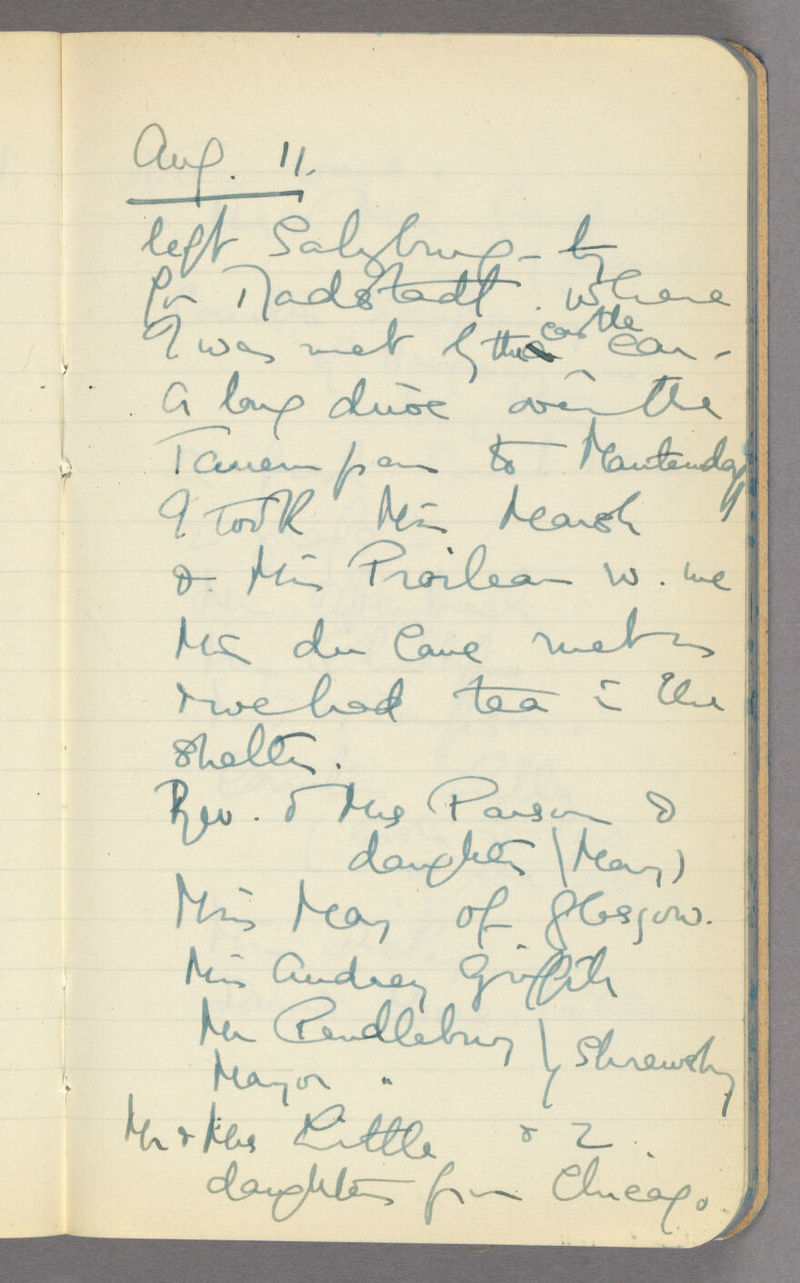 Aug. 11.
left Salzburg - by
for Radstadt. where
I was met by the castle car -
A long drive over the
Tauern pass to Mauterndorf
I took Miss Marsh
& Miss w. me
Miss du Cane met us
& we had tea in the
shelter.
Rev. & Mrs Parson &
daughter (Mary)
Miss May of Glasgow.
Miss Audrey Griffith
Mr Pendlebury } Shrewsbury
Mayor "
Mr & Mrs Little & 2.
daughters from Chicago.